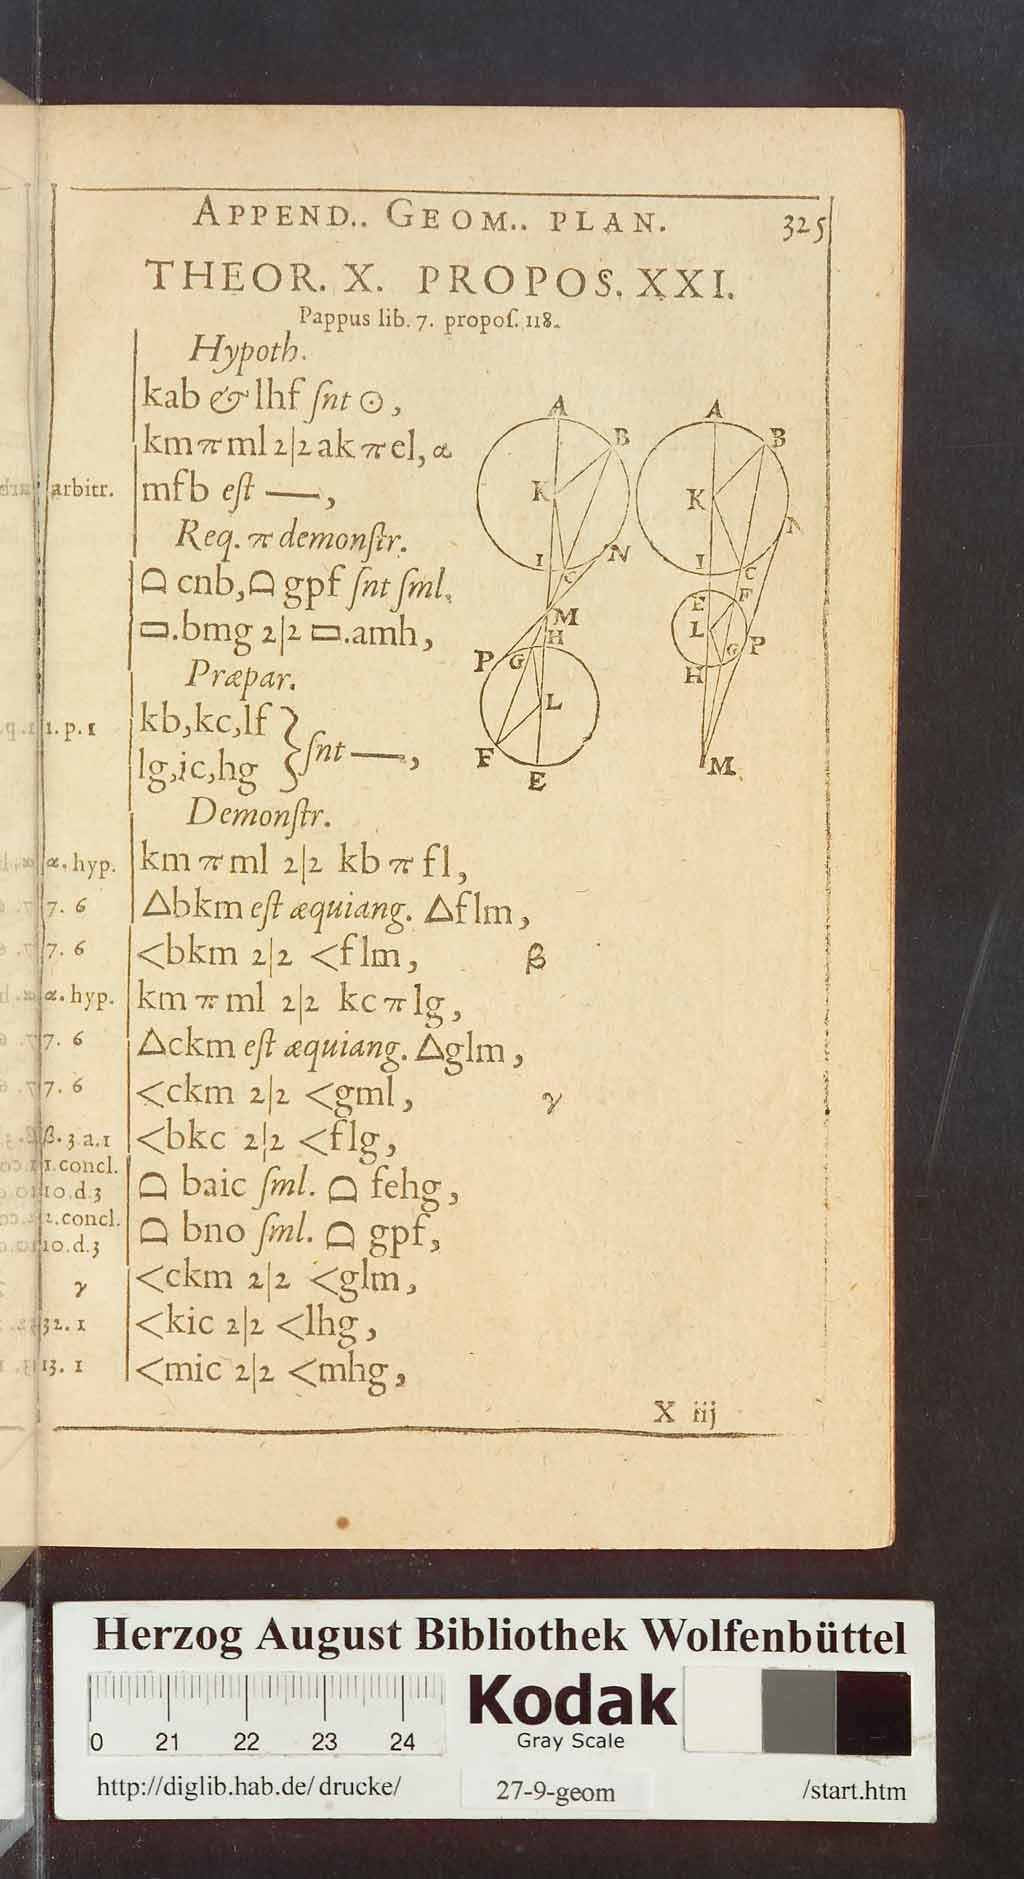 APPEND.. GEOM.. PLAN. 325
THEOR. X. PROPOS. XXI.
Pappus lib. 7. propoſ. 118.
Hypoth.
kab & lhf ſnt ⊙,
km π ml 2|2 ak π el, α
arbitr. mfb eſt —,
Req. π demonſtr.
⌓ cnb, ⌓ gpf ſnt ſml.
▭.bmg 2|2 ▭.amh,
Præpar.
1. p. 1 kb, kc, lf
lg, ic, hg } ſnt —,
Demonſtr.
α. hyp. km π ml 2|2 kb π fl,
7. 6 △bkm eſt æquiang. △flm,
7. 6 <bkm 2|2 <flm, β
α. hyp. km π ml 2|2 kc π lg,
7. 6 △ckm eſt æquiang. △glm,
7. 6 <ckm 2|2 <gml, γ
β. 3. a. 1 <bkc 2|2 <flg,
1. concl.
10. d. 3 ⌓ baic ſml. ⌓ fehg,
2. concl.
10. d. 3 ⌓ bno ſml. ⌓ gpf,
γ <ckm 2|2 <glm,
32. 1 <kic 2|2 <lhg,
13. 1 <mic 2|2 <mhg,
X iij
A
B
K
I
C
N
M
H
P
G
L
F
E
A
B
K
N
I
C
E
F
L
G
P
H
M
Herzog August Bibliothek Wolfenbüttel
0 21 22 23 24
Kodak
Gray Scale
http://diglib.hab.de/drucke/ 27-9-geom /start.htm